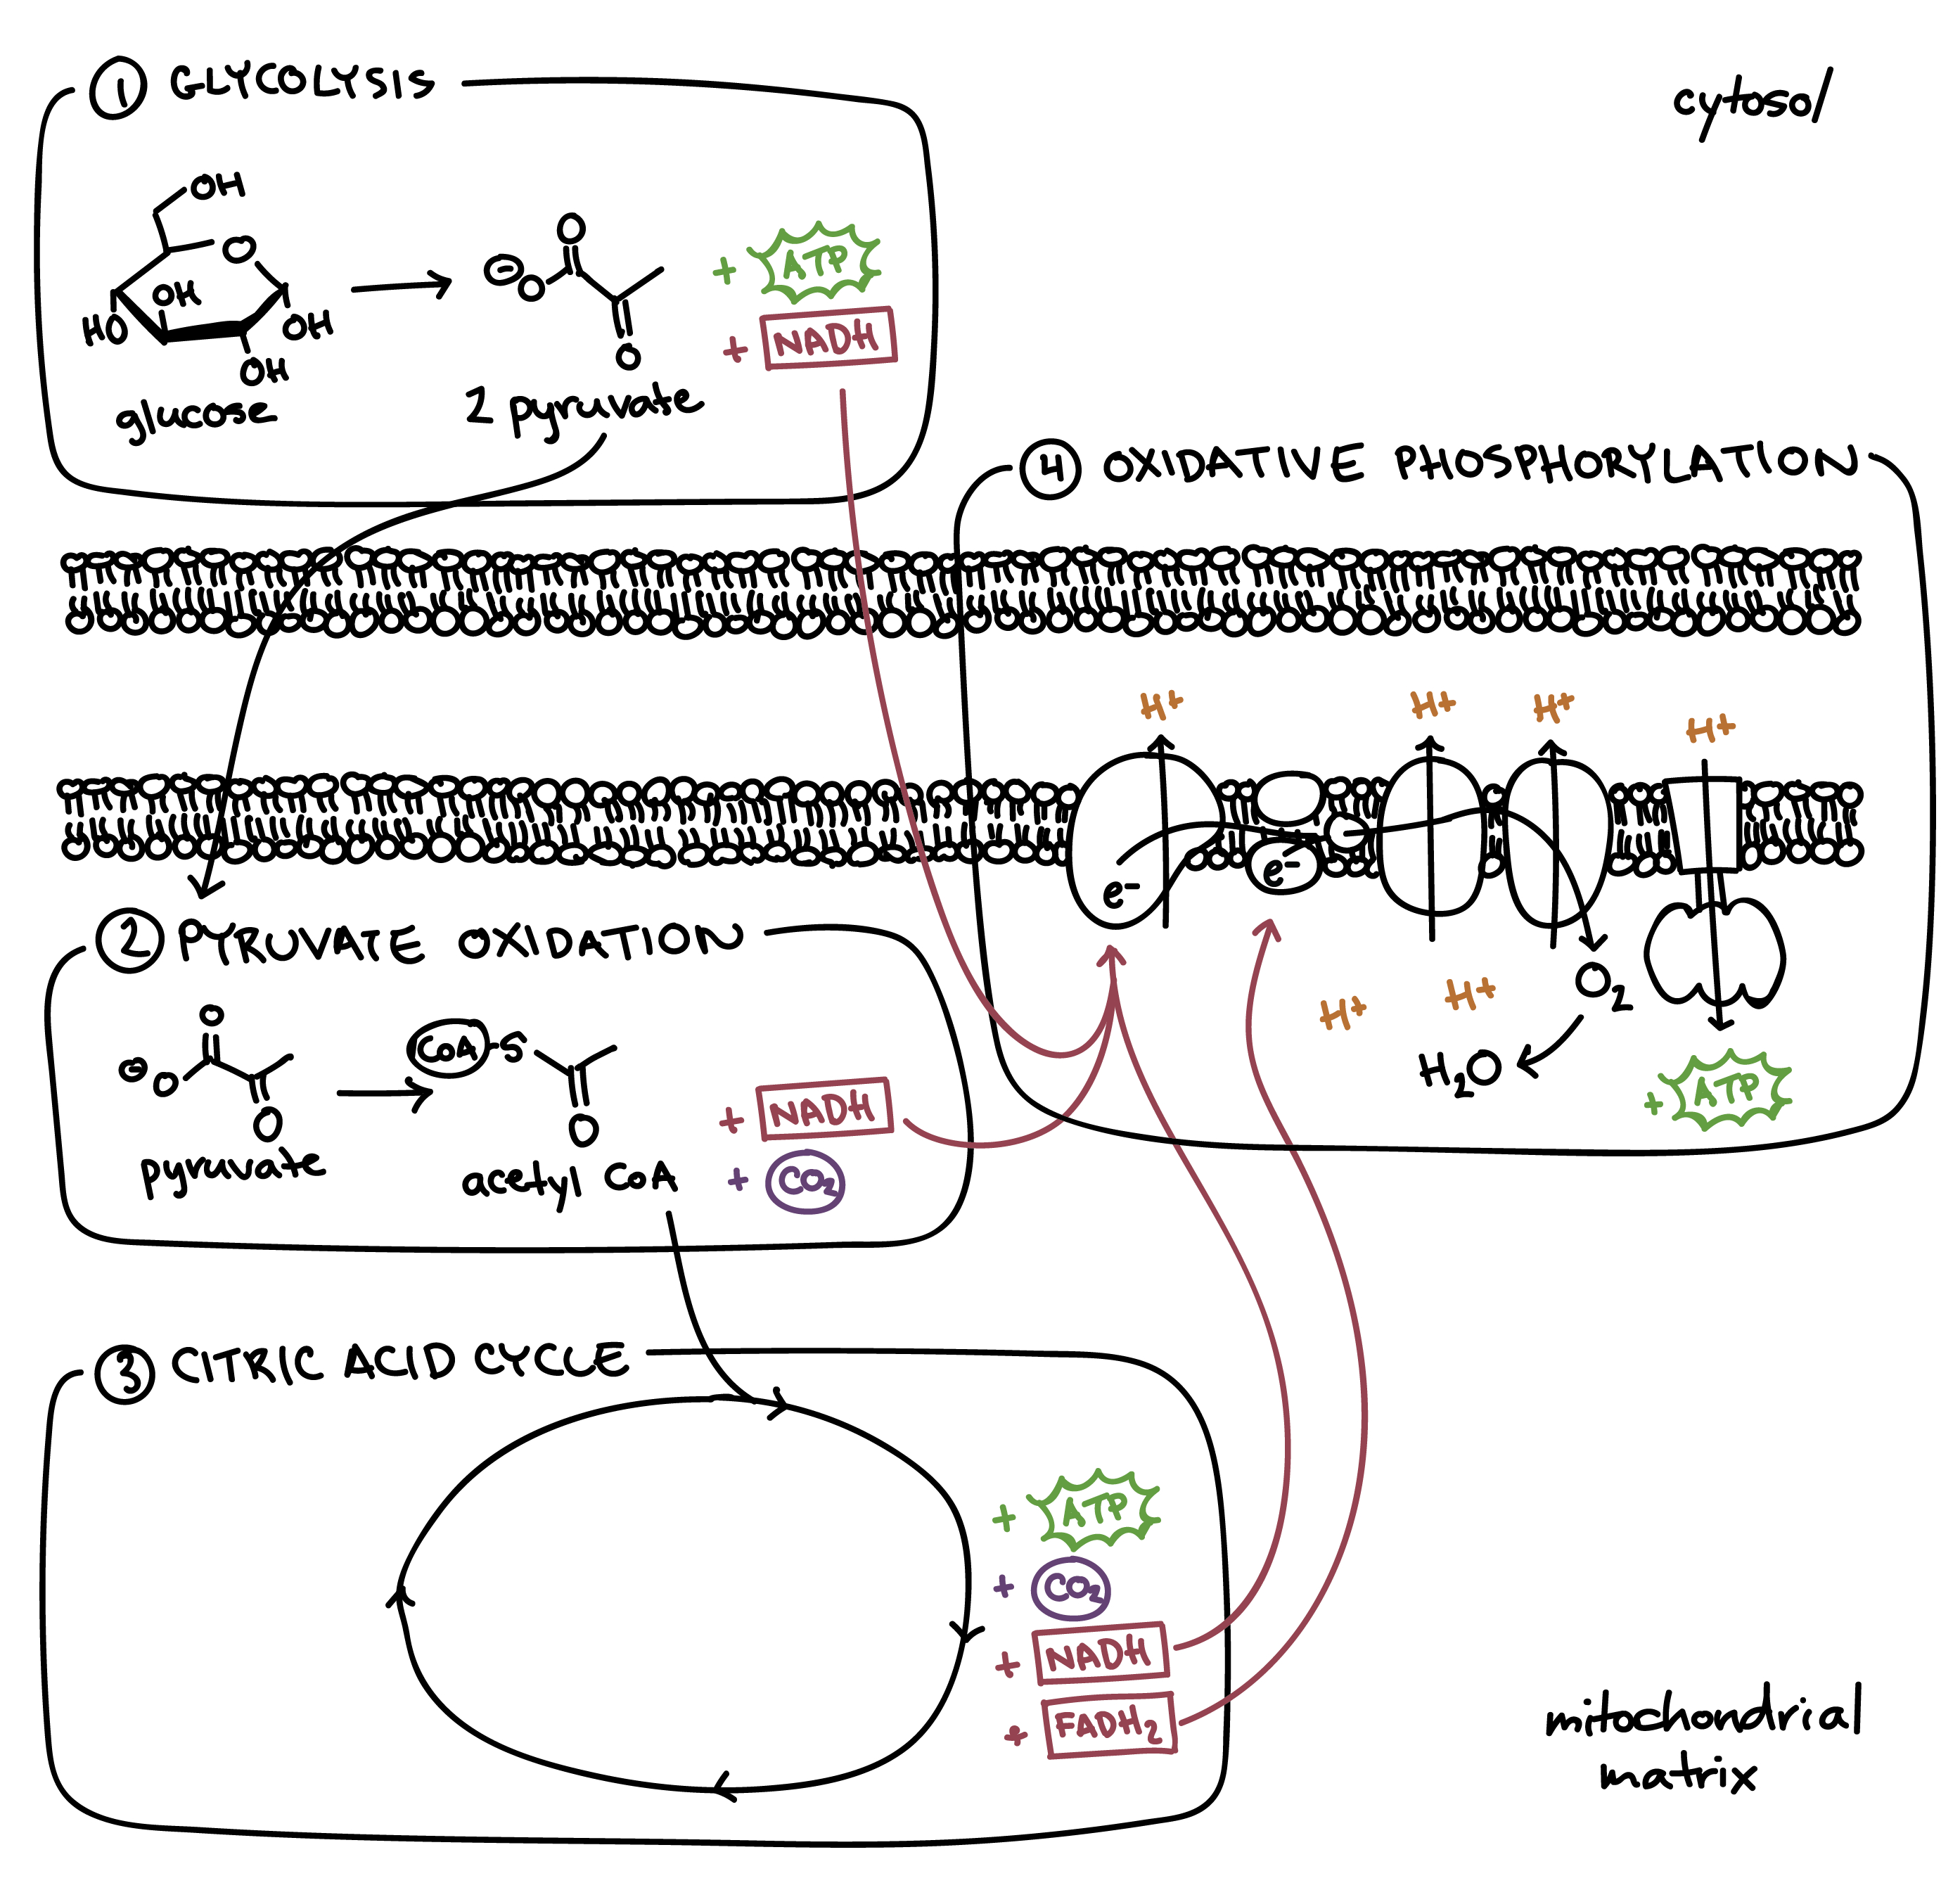 1 GLYCOLYSIS
cytosol
OH
O
OH
HO
OH
OH
glucose
O
⊖ O
O
2 pyruvate
+ ATP
+ NADH
4 OXIDATIVE PHOSPHORYLATION
H+ H+ H+ H+
e- e-
H+ H+
O2
H2O
+ ATP
2 PYRUVATE OXIDATION
O
⊖ O
O
pyruvate
CoA-S
O
acetyl CoA
+ NADH
+ CO2
3 CITRIC ACID CYCLE
+ ATP
+ CO2
+ NADH
+ FADH2
mitochondrial
matrix